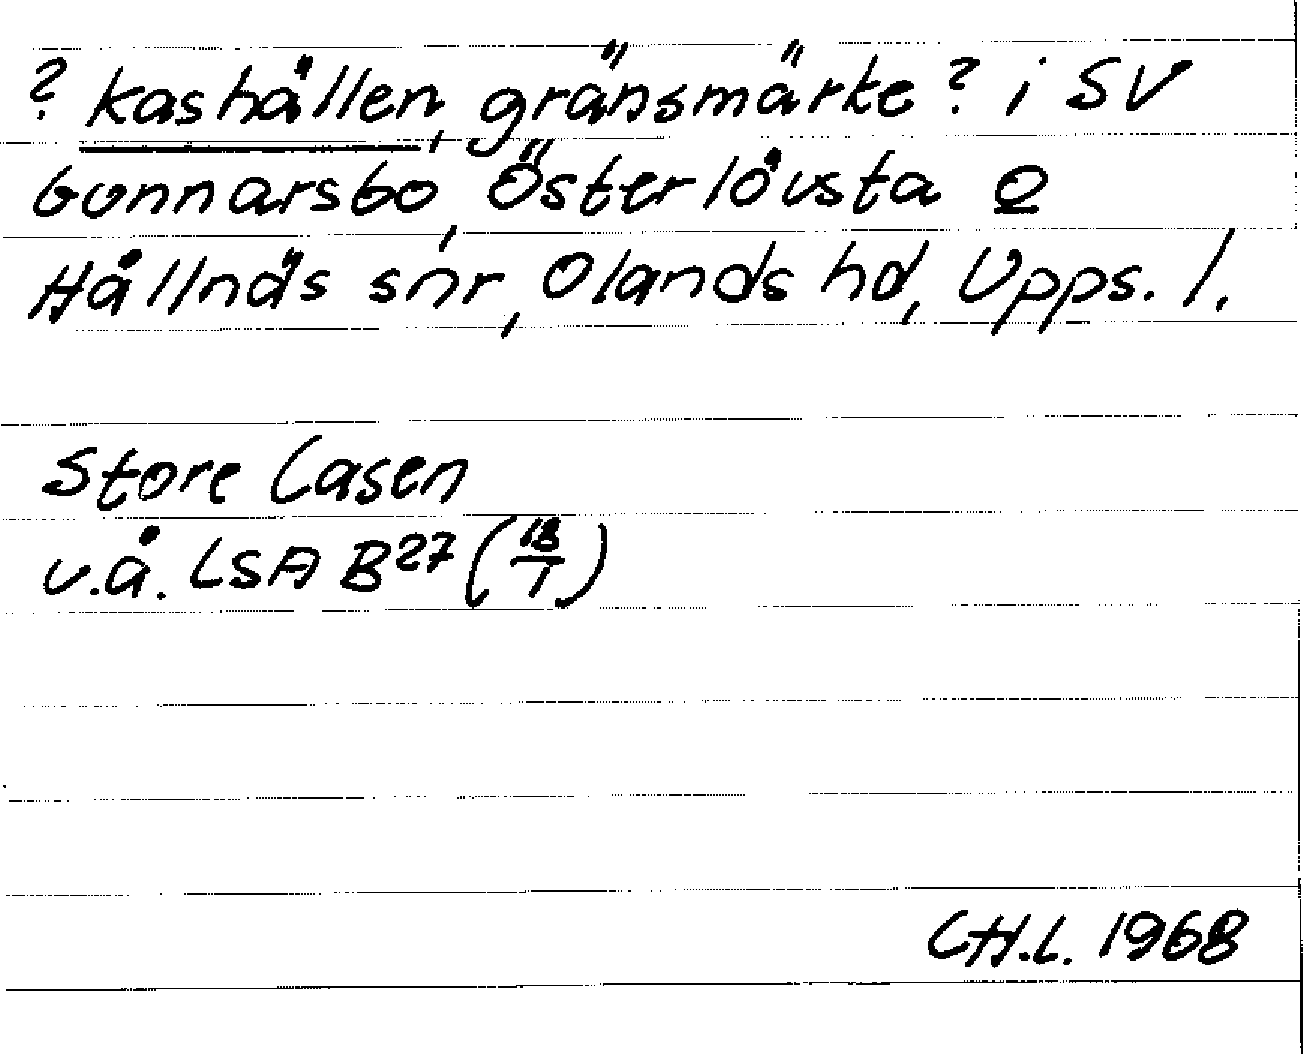 ? Kashållen, gränsmärke? i SV
Gunnarsbo, Österlövsta o
Hållnäs snr, Olands hd, Upps. l.
Store Casen
u.å. LSA B27 (18/1)
CH.L. 1968